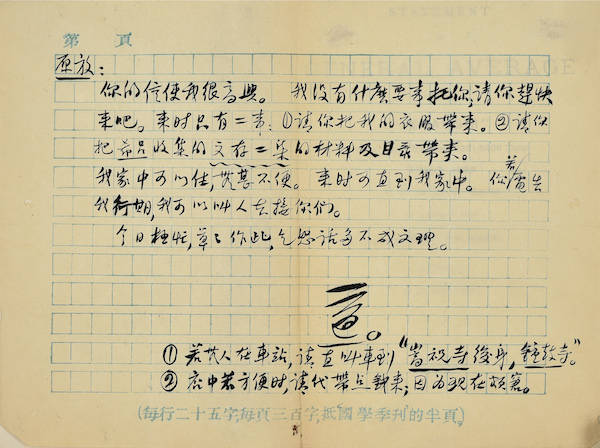 第 頁
原放：
你的信使我很高興。 我没有什麽要事托你,請你趕快
来吧。来时只有二事：①請你把我的衣服帶来。②請你
把希吕收集的文存二集的材料及目录帶来。
我家中可以住,無甚不便。 来时可直到我家中。 你若電告
我行期,我可以叫人去接你们。
今日極忙,草〻作此,乞恕話多不成文理。
適。
①若無人在車站,請直叫車到“嵩祝寺後身,鐘鼓寺。”
②店中若方便时,請代帶点錢来;因为現在頗窘。
(每行二十五字,每頁三百字,抵國學季刊的半頁。)